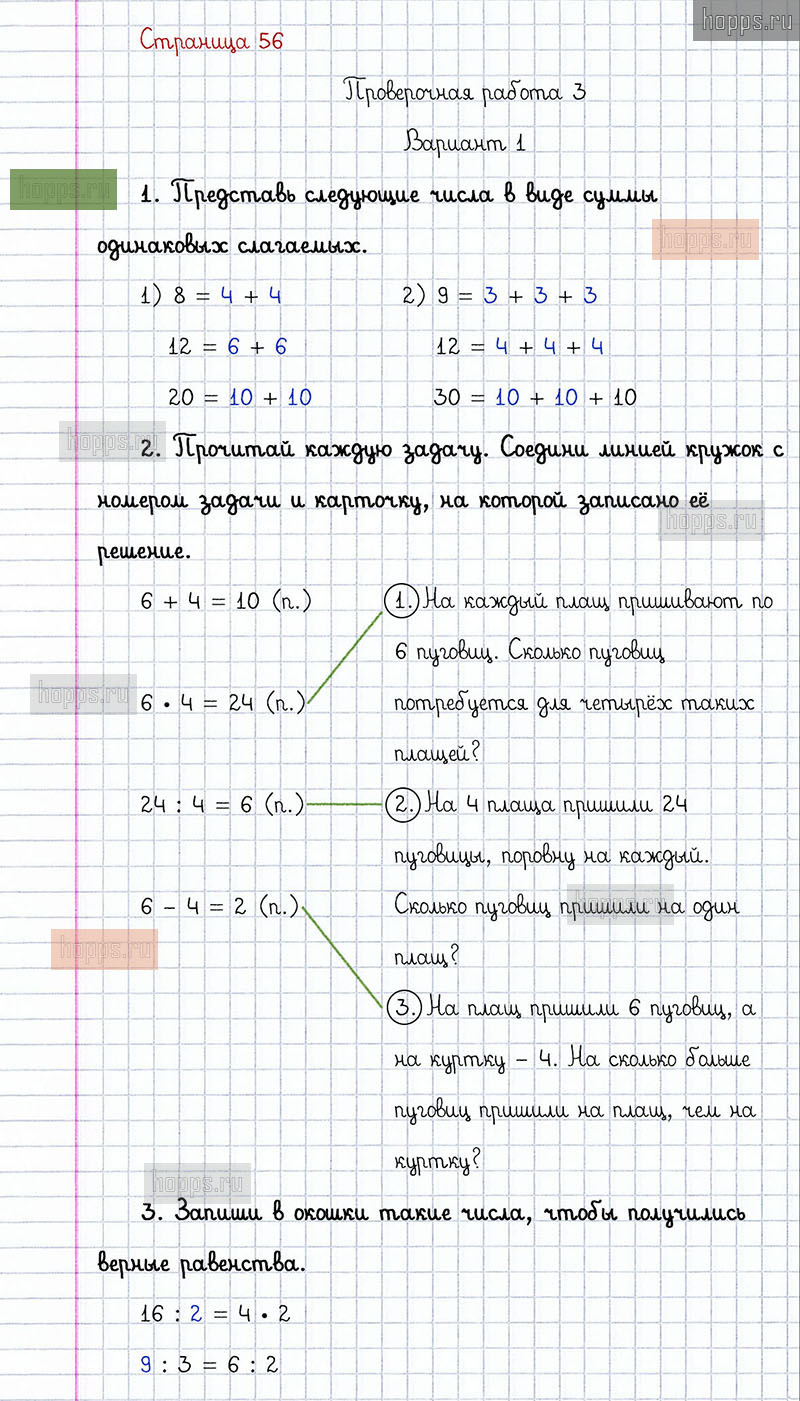 hopps.ru
Страница 56
Проверочная работа 3
Вариант 1
hopps.ru
1. Представь следующие числа в виде суммы
одинаковых слагаемых.
hopps.ru
1) 8 = 4 + 4
2) 9 = 3 + 3 + 3
12 = 6 + 6
12 = 4 + 4 + 4
20 = 10 + 10
30 = 10 + 10 + 10
hopps.ru
2. Прочитай каждую задачу. Соедини линией кружок с
номером задачи и карточку, на которой записано её
hopps.ru
решение.
6 + 4 = 10 (п.)
6 • 4 = 24 (п.)
24 : 4 = 6 (п.)
6 – 4 = 2 (п.)
1. На каждый плащ пришивают по
6 пуговиц. Сколько пуговиц
потребуется для четырёх таких
плащей?
2. На 4 плаща пришили 24
пуговицы, поровну на каждый.
Сколько пуговиц пришили на один
плащ?
3. На плащ пришили 6 пуговиц, а
на куртку – 4. На сколько больше
пуговиц пришили на плащ, чем на
куртку?
hopps.ru
hopps.ru
hopps.ru
hopps.ru
3. Запиши в окошки такие числа, чтобы получились
верные равенства.
16 : 2 = 4 • 2
9 : 3 = 6 : 2